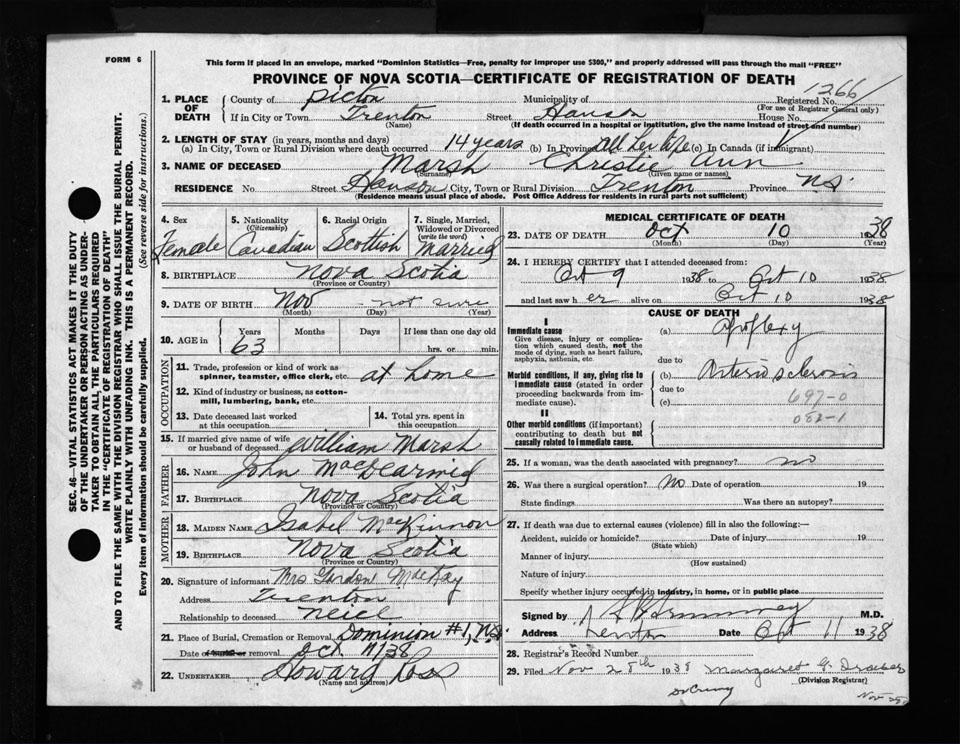 FORM 6
This form if placed in an envelope, marked "Dominion Statistics—Free, penalty for improper use $300," and properly addressed will pass through the mail "FREE"
PROVINCE OF NOVA SCOTIA—CERTIFICATE OF REGISTRATION OF DEATH
1266
1. PLACE OF DEATH County of Pictou Municipality of Registered No.
(For use of Registrar General only)
If in City or Town Trenton Street Hanson House No.
(Name) (If death occurred in a hospital or institution, give the name instead of street and number)
2. LENGTH OF STAY (in years, months and days)
(a) In City, Town or Rural Division where death occurred 14 years (b) In Province All her life (c) In Canada (if immigrant)
3. NAME OF DECEASED Marsh Christie Ann
(Surname) (Given name or names)
RESIDENCE No. Street Hanson City, Town or Rural Division Trenton Province N.S.
(Residence means usual place of abode. Post Office Address for residents in rural parts not sufficient)
4. Sex 5. Nationality (Citizenship) 6. Racial Origin 7. Single, Married, Widowed or Divorced (write the word)
Female Canadian Scottish Married
8. BIRTHPLACE Nova Scotia
(Province or Country)
9. DATE OF BIRTH Nov - not sure
(Month) (Day) (Year)
10. AGE in Years Months Days If less than one day old
63 hrs. or min.
OCCUPATION
11. Trade, profession or kind of work as spinner, teamster, office clerk, etc. at home
12. Kind of industry or business, as cotton-mill, lumbering, bank, etc.
13. Date deceased last worked at this occupation 14. Total yrs. spent in this occupation
15. If married give name of wife or husband of deceased William Marsh
FATHER
16. NAME John MacDearmid
17. BIRTHPLACE Nova Scotia
(Province or Country)
MOTHER
18. MAIDEN NAME Isabel MacKinnon
19. BIRTHPLACE Nova Scotia
(Province or Country)
20. Signature of informant Mrs Gordon MacKay
Address Trenton
Relationship to deceased Neice
21. Place of Burial, Cremation or Removal Dominion #1, N.S.
Date of burial or removal Oct 11/38
22. UNDERTAKER Howard Ross
(Name and address)
MEDICAL CERTIFICATE OF DEATH
23. DATE OF DEATH Oct 10 1938
(Month) (Day) (Year)
24. I HEREBY CERTIFY that I attended deceased from:
Oct 9 1938 to Oct 10 1938
and last saw h er alive on Oct 10 1938
CAUSE OF DEATH
I
Immediate cause
Give disease, injury or complication which caused death, not the mode of dying, such as heart failure, asphyxia, asthenia, etc.
(a) Apoplexy
due to
Morbid conditions, if any, giving rise to immediate cause (stated in order proceeding backwards from immediate cause).
(b) Arterio sclerosis
due to
(c) 697-0
082-1
II
Other morbid conditions (if important) contributing to death but not causally related to immediate cause.
25. If a woman, was the death associated with pregnancy? no
26. Was there a surgical operation? No Date of operation 19
State findings Was there an autopsy?
27. If death was due to external causes (violence) fill in also the following:—
Accident, suicide or homicide? Date of injury 19
(State which)
Manner of injury
(How sustained)
Nature of injury
Specify whether injury occurred in industry, in home, or in public place
Signed by M.D.
Address Trenton Date Oct 11 1938
28. Registrar's Record Number
29. Filed Nov 28th 1938 Margaret G.
(Division Registrar)
SEC. 46—VITAL STATISTICS ACT MAKES IT THE DUTY
OF THE UNDERTAKER OR PERSON ACTING AS UNDER-
TAKER TO OBTAIN ALL THE PARTICULARS REQUIRED
IN THE "CERTIFICATE OF REGISTRATION OF DEATH"
AND TO FILE THE SAME WITH THE DIVISION REGISTRAR WHO SHALL ISSUE THE BURIAL PERMIT.
WRITE PLAINLY WITH UNFADING INK. THIS IS A PERMANENT RECORD.
Every item of information should be carefully supplied. (See reverse side for instructions.)